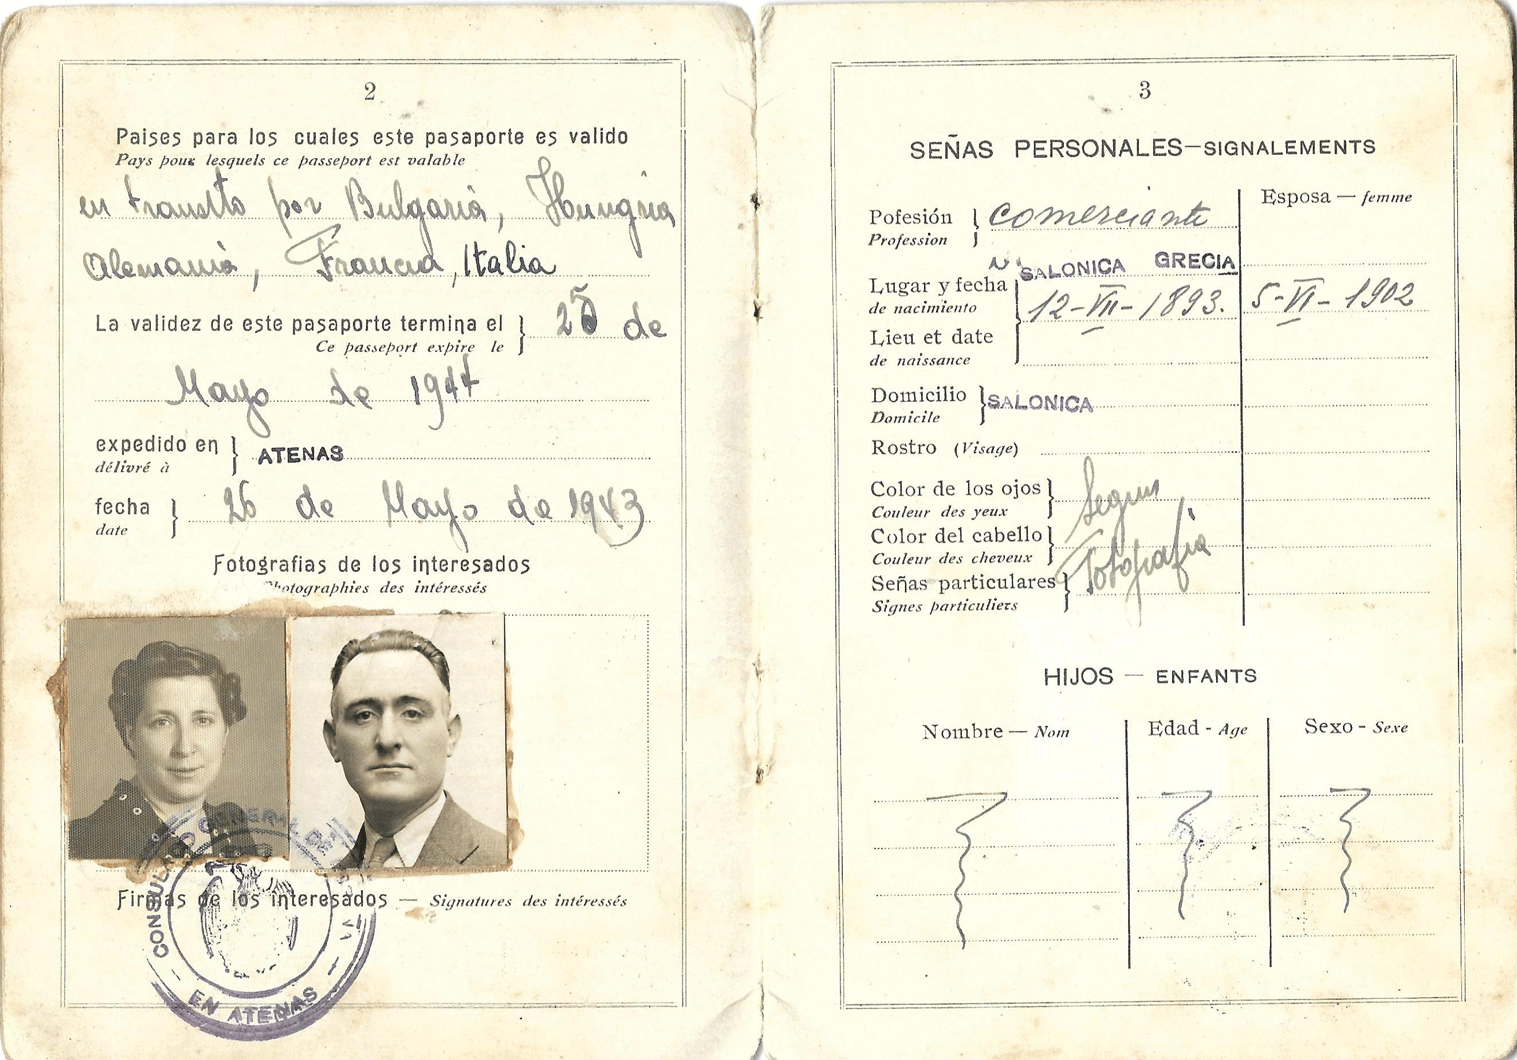 2
Paises para los cuales este pasaporte es valido
Pays pour lesquels ce passeport est valable
en transito por Bulgaria, Hungria
Alemania, Francia, Italia
La validez de este pasaporte termina el } 25 de
Ce passeport expire le
Mayo de 1944
expedido en } ATENAS
délivré à
fecha } 26 de Mayo de 1943
date
Fotografias de los interesados
Photographies des intéressés
CONSULADO GENERAL DE
Firmas de los interesados — Signatures des intéressés
EN ATENAS
3
SEÑAS PERSONALES—SIGNALEMENTS
Esposa — femme
Pofesión } comerciante
Profession
SALONICA GRECIA
Lugar y fecha
de nacimiento 12-VII-1893. 5-VI-1902
Lieu et date
de naissance
Domicilio } SALONICA
Domicile
Rostro (Visage)
Color de los ojos } Segun
Couleur des yeux
Color del cabello }
Couleur des cheveux Fotografia
Señas particulares }
Signes particuliers
HIJOS — ENFANTS
Nombre — Nom Edad - Age Sexo - Sexe